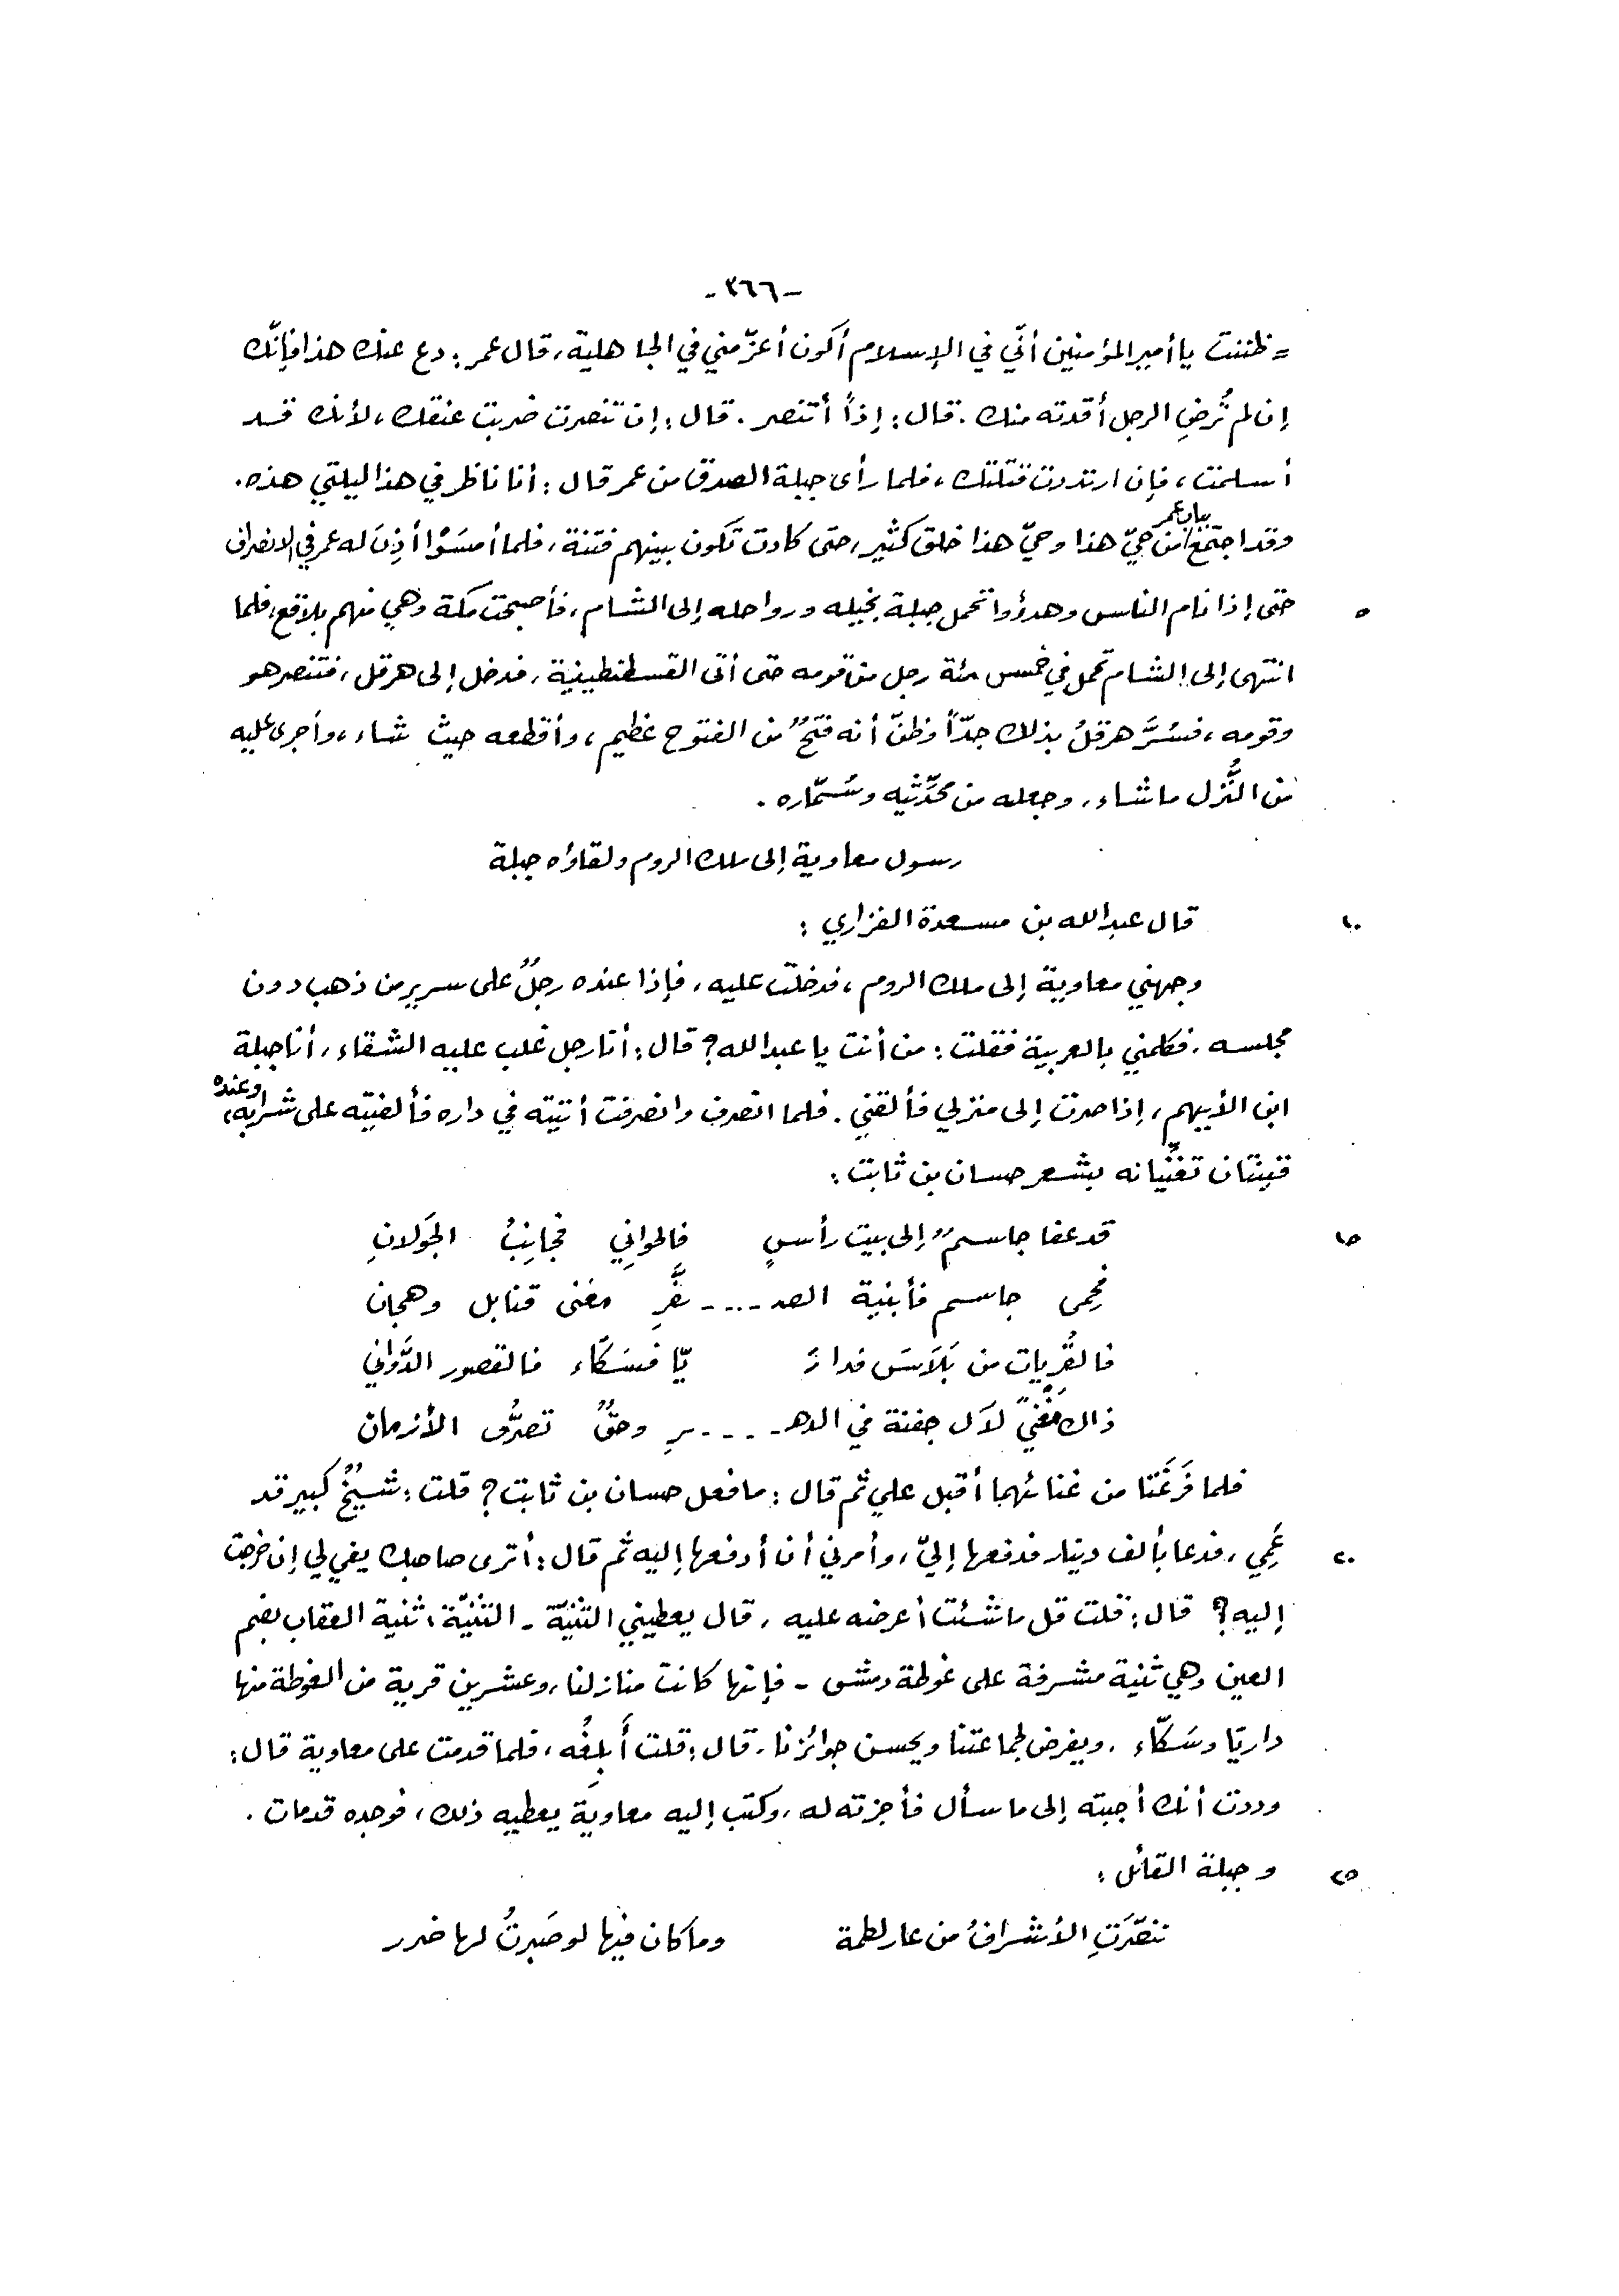 -٣٦٦-
= ظننت يا أمير المؤمنين أنّي في الإسلام أكون أعزّ مني في الجاهلية، قال عمر: دع عنك هذا فإنّك
إن لم تُرضِ الرجل أقدته منك. قال: إذاً أتنصر. قال: إن تنصرت ضربت عنقك، لأنك قد
أسلمت، فإن ارتددت قتلتك، فلما رأى جبلة الصدق من عمر قال: أنا ناظر في هذا ليلتي هذه.
وقد اجتمع بباب عمر من حيّ هذا وحيّ هذا خلق كثير، حتى كادت تكون بينهم فتنة، فلما أمسَوْا أذِنَ له عمر في الانصراف
٥ حتى إذا نام الناس وهدؤوا تحمل جبلة بخيله ورواحله إلى الشام، فأصبحت مكة وهي منهم بلاقع، فلما
انتهى إلى الشام تحمل في خمس مئة رجل من قومه حتى أتى القسطنطينية، فدخل إلى هرقل، فتنصر هو
وقومه، فسُرَّ هرقلُ بذلك جدّاً وظنّ أنه فتحٌ من الفتوح عظيم، وأقطعه حيث شاء، وأجرى عليه
من النُّزُل ما شاء، وجعله من محدّثيه وسُمّاره.
رسول معاوية إلى ملك الروم ولقاؤه جبلة
١٠ قال عبد الله بن مسعدة الفزاري:
وجهني معاوية إلى ملك الروم، فدخلت عليه، فإذا عنده رجلٌ على سريرٍ من ذهب دون
مجلسه، فكلمني بالعربية فقلت: من أنت يا عبد الله؟ قال: أنا رجل غلب عليه الشقاء، أنا جبلة
ابن الأيهم، إذا صرت إلى منزلي فألقني. فلما انصرف وانصرفت أتيته في داره فألفيته على شرابه، وعنده
قينتان تغنّيانه بشعر حسان بن ثابت:
١٥ قد عفا جاسمٌ إلى بيت رأسٍ فالحواني فجانِبُ الجَولانِ
فحِمى جاسم فأبنية الصد ـ . . ـ ـ ـفَّرِ مغنى قنابل وهجان
فالقُريات من بَلاَسَ فدارَ يّا فسَكّاء فالقصور الدَّواني
ذاك مَغْنىً لآل جفنة في الدهـ . ـ . ـ ـرِ وحقٌّ تصرُّف الأزمان
فلما فَرَغَتا من غنائهما أقبل علي ثم قال: ما فعل حسان بن ثابت؟ قلت: شيخٌ كبير قد
٢٠ عَمِي، فدعا بألف دينار فدفعها إليّ، وأمرني أن أدفعها إليه ثم قال: أترى صاحبك يفي لي إن خرجت
إليه؟ قال: قلت قل ما شئت أعرضه عليه، قال يعطيني الثنيّة - الثنيّة، ثنية العقاب بضم
العين وهي ثنية مشرفة على غوطة دمشق - فإنها كانت منازلنا، وعشرين قرية من الغوطة منها
داريّا وسَكّاء، ويفرض لجماعتنا ويحسن جوائزنا، قال: قلت أبلغُه، فلما قدمت على معاوية قال:
وددت أنك أجبته إلى ما سأل فأجزته له، وكتب إليه معاوية يعطيه ذلك، فوجده قد مات.
٢٥ وجبلة القائل:
تنصّرَتِ الأشرافُ من عار لطمة وما كان فيها لو صَبرتُ لها ضرر